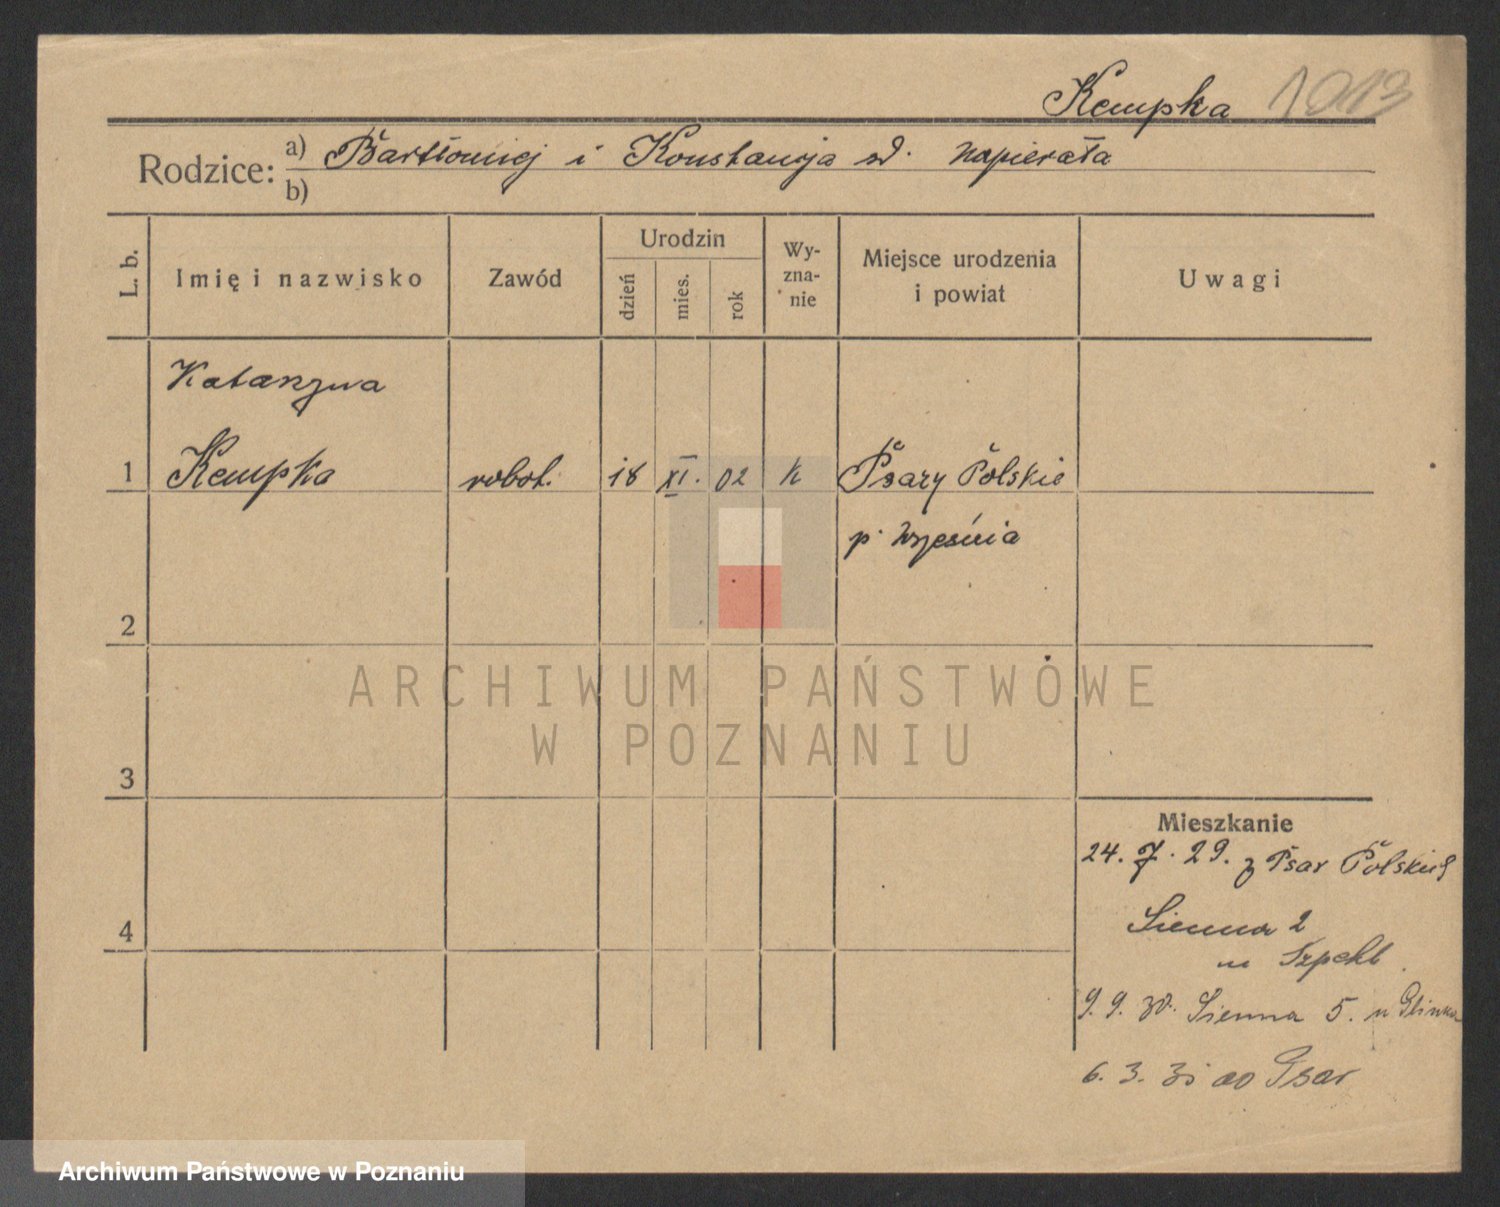 Kempka 1013
Rodzice: a) Bartłomiej i Konstancja zd. Napierała
b)
L. b.
Imię i nazwisko
Zawód
Urodzin
dzień
mies.
rok
Wy-
zna-
nie
Miejsce urodzenia
i powiat
Uwagi
Katarzyna
1 Kempka robot. 18 XI. 02 k Psary Polskie
p. Września
2
3
4
Mieszkanie
24. 7. 29. z Psar Polskich
Sienna 2
u
9. 9. 30. Sienna 5. u Glinka
6. 3. 31 do Psar
ARCHIWUM PAŃSTWOWE
W POZNANIU
Archiwum Państwowe w Poznaniu